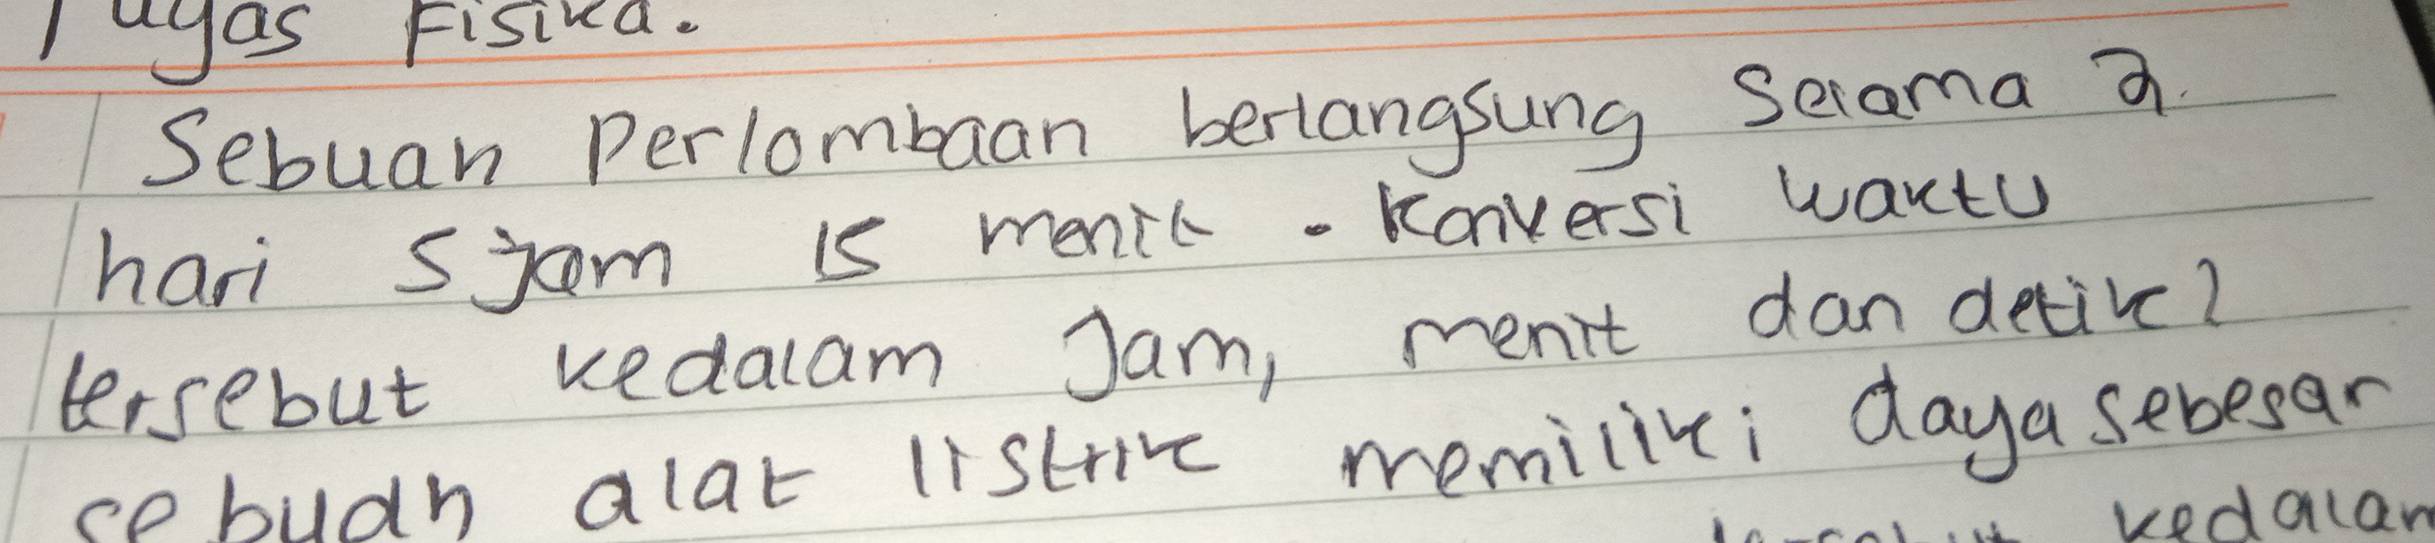 Tugas Fisika.
Sebuah Perlombaan berlangsung Selama 2
hari 5 jam 15 menit . Konversi waktu
tersebut kedalam Jam, menit dan detik?
sebuah alat listrik memiliki daya sebesar
tersebut kedalam